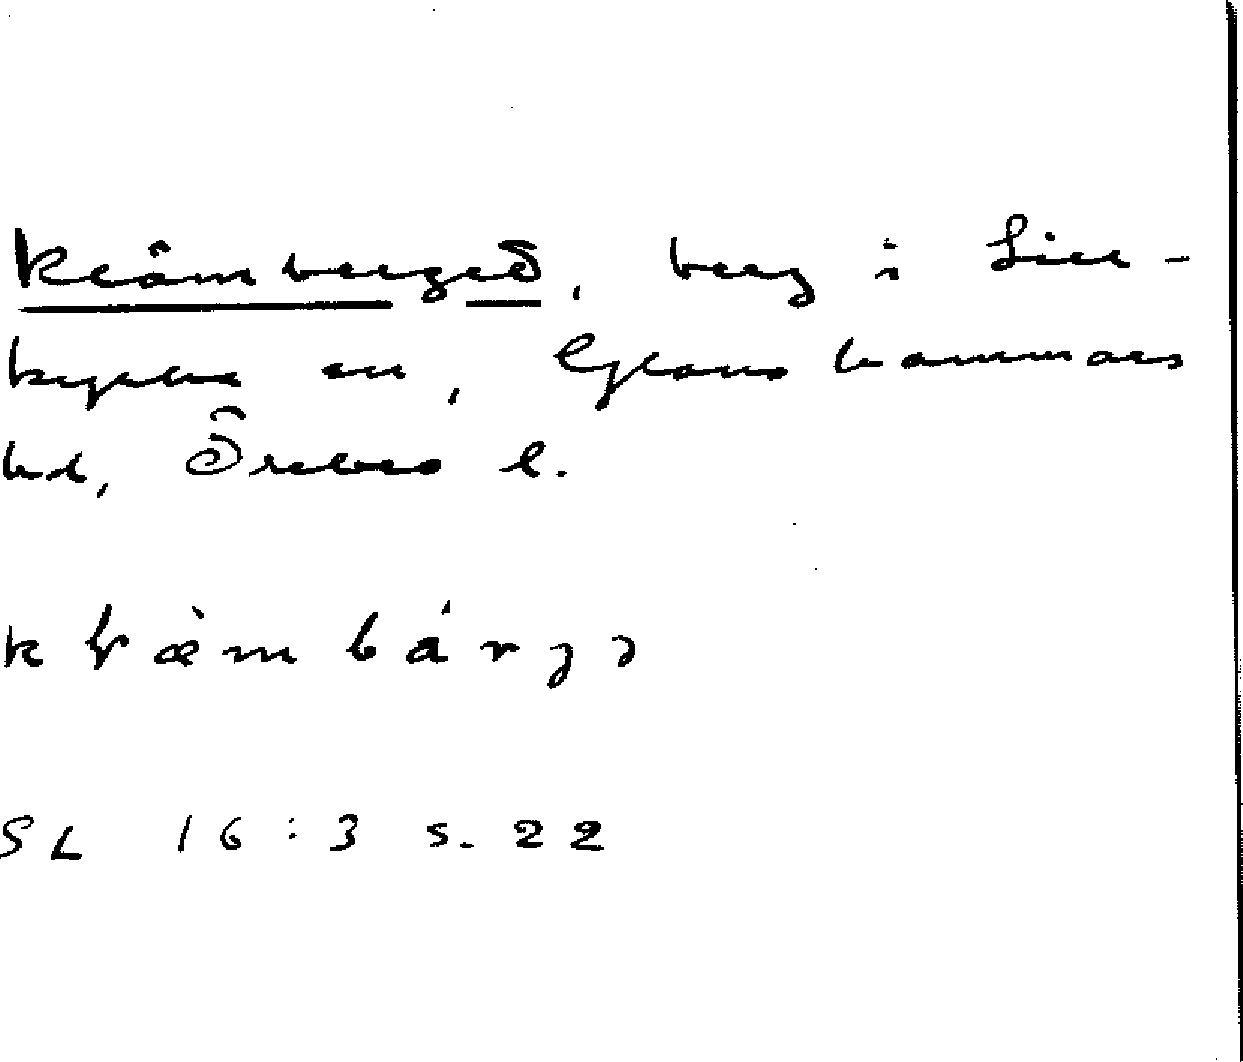 Klämberget, berg i Lill-
kyrka sn, Glanshammars
hd, Örebro l.
SL 16:3 s. 22